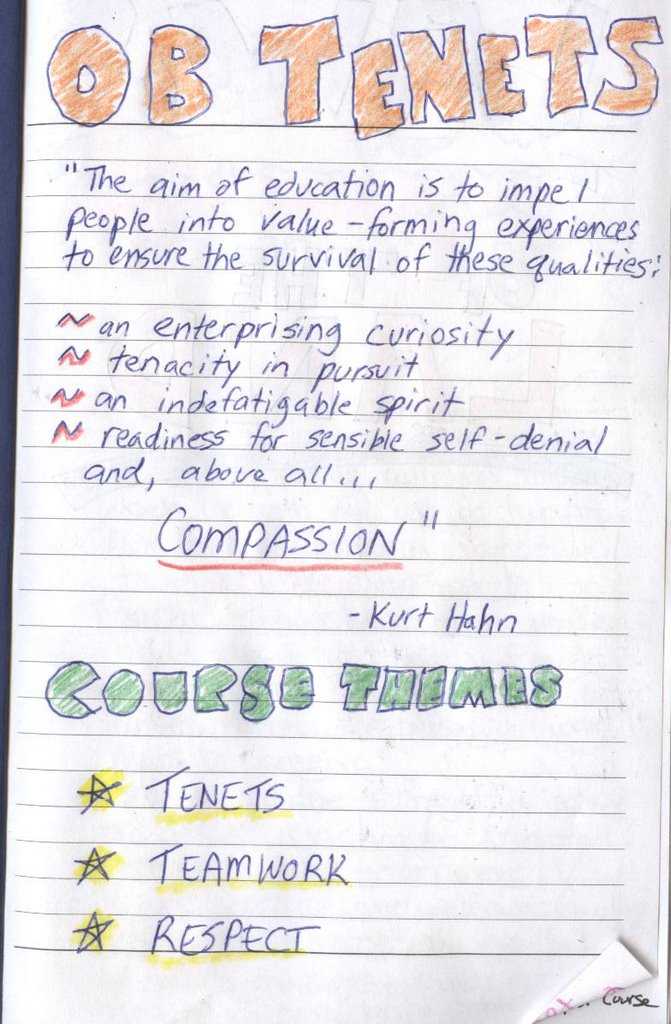 OB TENETS
"The aim of education is to impel
people into value-forming experiences
to ensure the survival of these qualities:
~ an enterprising curiosity
~ tenacity in pursuit
~ an indefatigable spirit
~ readiness for sensible self-denial
and, above all...
COMPASSION"
- Kurt Hahn
COURSE THEMES
☆ TENETS
☆ TEAMWORK
☆ RESPECT
Course